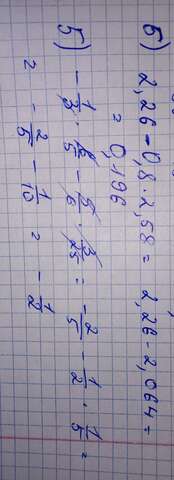 6) 2,26 - 0,8 · 2,58 = 2,26 - 2,064 =
= 0,196
5) - 1/3 · 6/5 - 5/6 · 3/25 = - 2/5 - 1/2 · 1/5 =
= - 2/5 - 1/10 = - 1/2